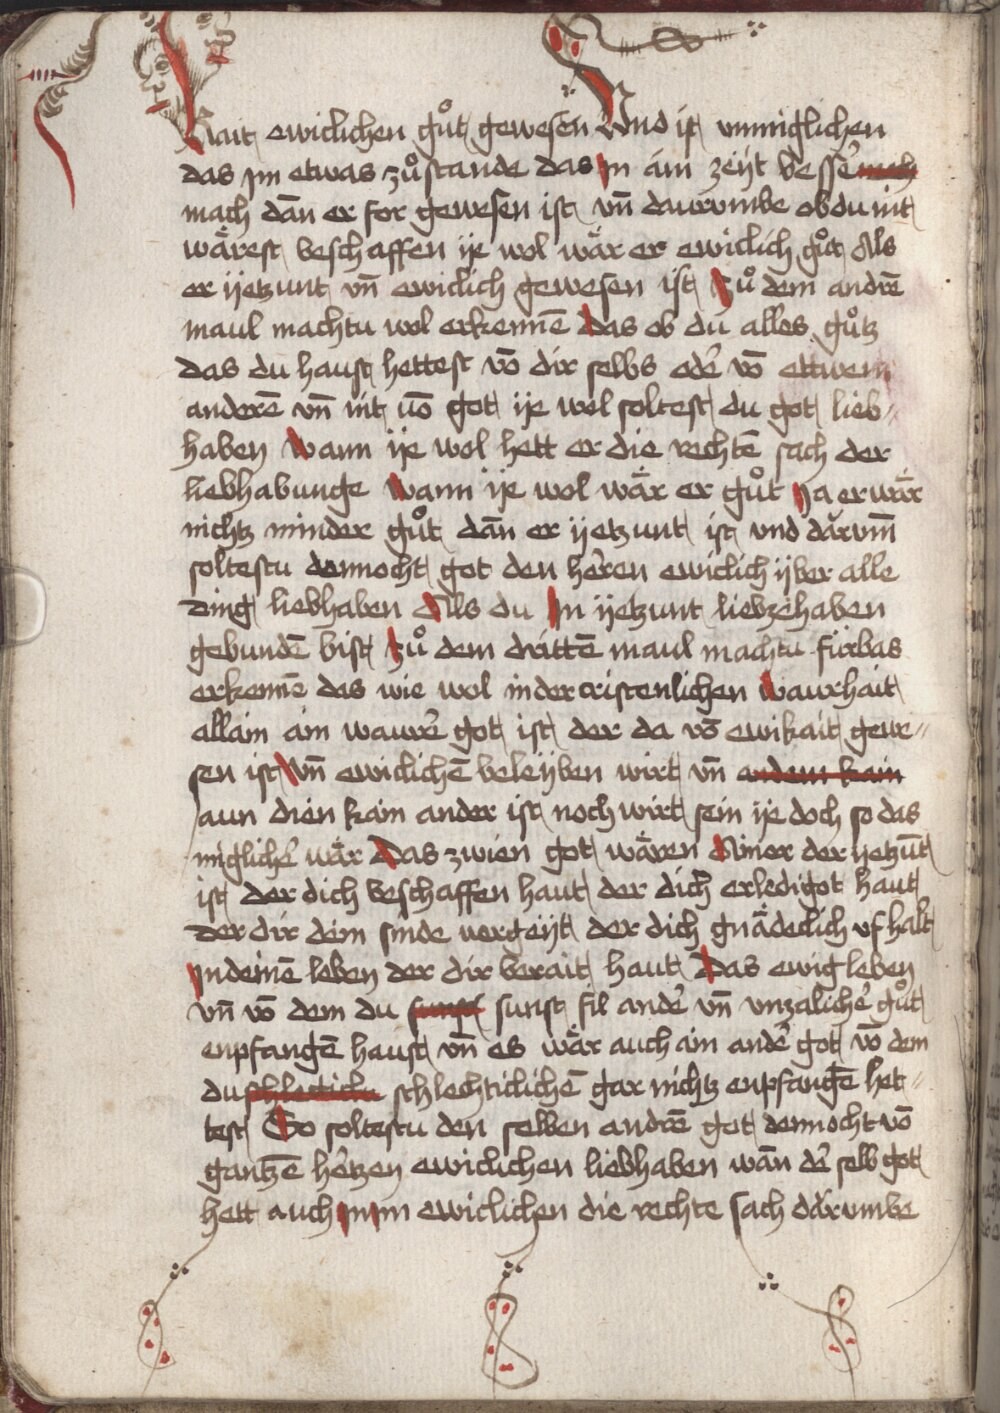 kait ewiclichen gůt gewesen Vnd ist vnmiglichen
das jm etwas zůstande das jn ain zeÿt besser
mach dañ er for gewesen ist vñ daurumbe ob du nit
wärest beschaffen ÿe wol wär er ewiclich gůt Als
er ÿetzunt vñ ewiclich gewesen ist Zů dem andrē
maul machtu wol erkennē das ob du alles gůtz
das du haust hettest võ dir selbs oder võ ettwem
anderē vñ nit võ got ÿe wol soltest du got lieb〃
haben Wann ÿe wol hett er die rechtē sach der
liebhabunge Wann ÿe wol wär er gůt Ja er wär
nichtz minder gůt dañ er ÿetzunt ist vnd darum̄
soltestu dennocht got den herren ewiclich ÿber alle
ding liebhaben Als du Jn ÿetzunt liebzehaben
gebundē bist Zů dem drittē maul machtu fürbas
erkennē das wie wol in der cristenlichen Waurhait
allain ain waurer got ist der da võ ewikait gewe〃
sen ist Vñ ewiclichē beleÿben wirt vñ andem kain
aun dien kain ander ist noch wirt sein ÿe doch so das
miglicher wär Das zwien got wären Ainer der ÿetzūt
ist der dich beschaffen haut der dich erledigot haut
Der dir dein sinde vergeÿt der dich gnädeclich vf halt
Jn deinē leben der dir berait haut Das ewig leben
vñ võ dem du sunst fil ander vñ vnzalicher gůt
enpfangē haust vñ es wär auch ain ander got võ dem
du schlecticliche schlechticlichē gar nichtz enpfangē het〃
test So soltestu den selben andrē got dennocht võ
gantzē hertzen ewiclichen liebhaben wañ der selb got
hett auch jnn im ewiclichen die rechte sach darumbe